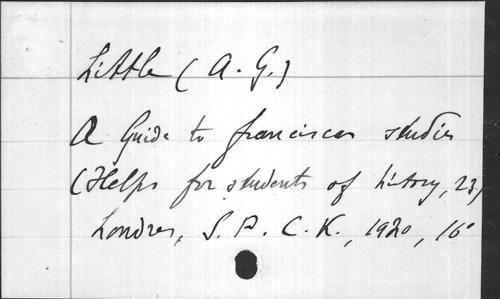 Little (A. G.)
A Guide to franciscan studies
(Helps for students of history, 23)
Londres, S. P. C. K., 1920, 16°